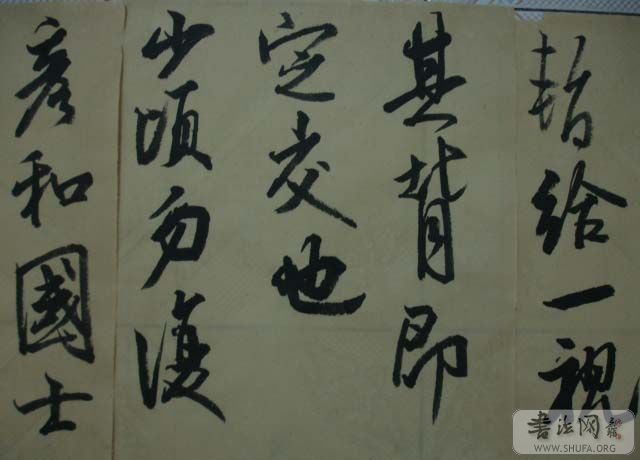 暫給一視
其背即
定交也
少頃勿復
彥和國士
书法网
WWW.SHUFA.ORG